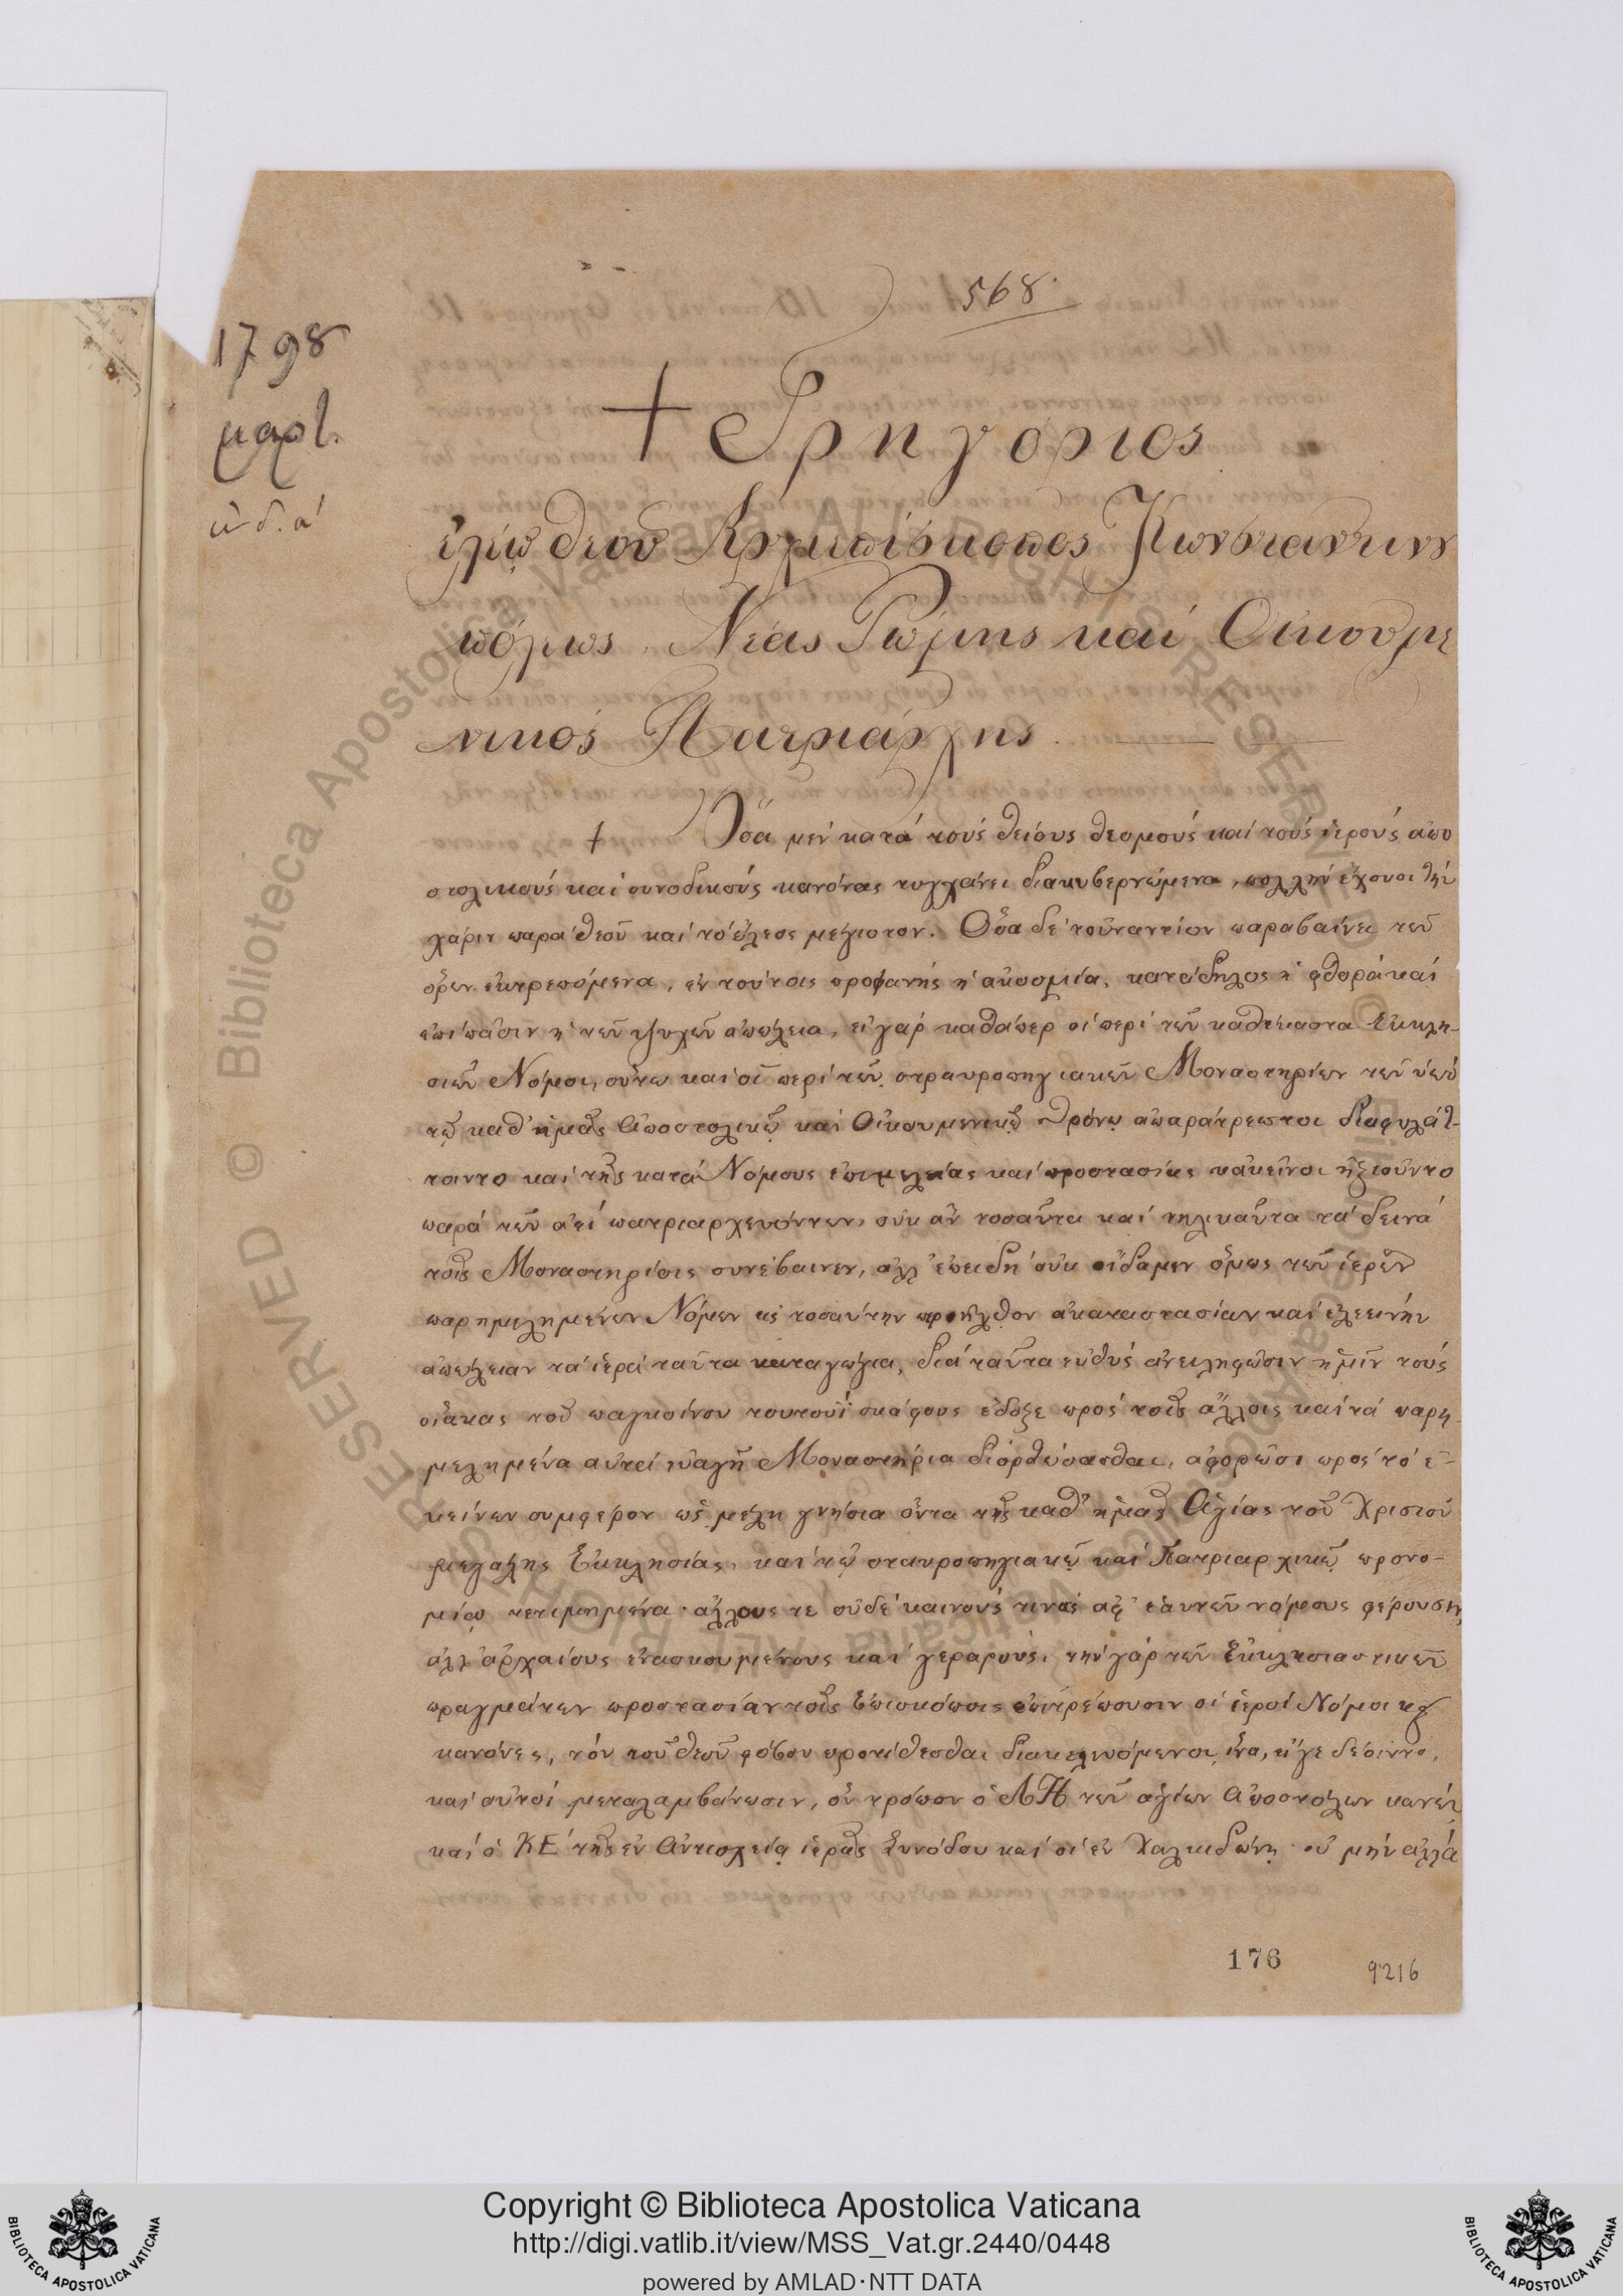 568
1798
μαρτ.
ἰνδ. α'
† Γρηγόριος
ἐλέῳ θεοῦ Ἀρχιεπίσκοπος Κωνσταντινου
πόλεως, Νέας Ῥώμης καί Οἰκουμε
νικός Πατριάρχης.
† Ὅσα μέν κατά τούς θείους θεσμούς καί τούς ἱερούς ἀπο
στολικούς καί συνοδικούς κανόνας τυγχάνει διακυβερνώμενα, πολλήν ἔχουσι τήν
χάριν παρά θεοῦ καί τό ἔλεος μέγιστον. Ὅσα δέ τοὐναντίον παραβαίνει τῶν
ὅρων ἐκτρεπόμενα, ἐν τούτοις προφανής ἡ ἀκοσμία, κατάδηλος ἡ φθορά καί
ἐπί πᾶσιν ἡ τῶν ψυχῶν ἀπώλεια, εἰ γάρ καθάπερ οἱ περί τῶν καθέκαστα Ἐκκλη-
σιῶν Νόμοι, οὕτω καί οἱ περί τῶν σταυροπηγιακῶν Μοναστηρίων τῶν ὑπό
τῷ καθ' ἡμᾶς Ἀποστολικῷ καί Οἰκουμενικῷ θρόνῳ ἀπαράτρεπτοι διαφυλάτ-
τοιντο καί τῆς κατά Νόμους ἐπιμελείας καί προστασίας κἀκεῖνοι ἠξιοῦντο
παρά τῶν ἀεί πατριαρχευόντων, οὐκ ἄν τοσαῦτα καί τηλικαῦτα τά δεινά
τοῖς Μοναστηρίοις συνέβαινεν, ἀλλ' ἐπειδή οὐκ οἴδαμεν ὅμως τῶν ἱερῶν
παρημελημένων Νόμων εἰς τοσαύτην προῆλθον ἀκαταστασίαν καί ἐλεεινήν
ἀπώλειαν τά ἱερά ταῦτα καταγώγια, διά ταῦτα εὐθύς ἀνειληφῶσιν ἡμῖν τούς
οἴακας τοῦ παγκοίνου τουτουΐ σκάφους ἔδοξε πρός τοῖς ἄλλοις καί τά παρη-
μελημένα αὐτά εὐαγῆ Μοναστήρια διορθώσασθαι, ἀφορῶσι πρός τό ἐ-
κείνων συμφέρον ὡς μέλη γνήσια ὄντα τῆς καθ' ἡμᾶς Ἁγίας τοῦ Χριστοῦ
μεγάλης Ἐκκλησίας, καί τῷ σταυροπηγιακῷ καί Πατριαρχικῷ προνο-
μίῳ τετιμημένα· ἄλλους τε οὐδέ καινούς τινάς ἀφ' ἑαυτῶν νόμους φέρουσιν,
ἀλλ' ἀρχαίους ἐνασκουμένους καί γεραρούς, τήν γάρ τῶν Ἐκκλησιαστικῶν
πραγμάτων προστασίαν τοῖς Ἐπισκόποις ἐπιτρέπουσιν οἱ ἱεροί Νόμοι κ
κανόνες, τόν τοῦ θεοῦ φόβον προτίθεσθαι διακελευόμενοι, ἵνα, εἴγε δέοιντο,
καί αὐτοί μεταλαμβάνωσιν, ὅν τρόπον ὁ ΛΗ τῶν ἁγίων Ἀποστόλων κανών
καί ὁ ΚΕ τῆς ἐν Ἀντιοχείᾳ ἱερᾶς Συνόδου καί οἱ ἐν Χαλκιδώνῃ· οὐ μήν ἀλλά
176
9216
Copyright © Biblioteca Apostolica Vaticana
http://digi.vatlib.it/view/MSS_Vat.gr.2440/0448
powered by AMLAD·NTT DATA